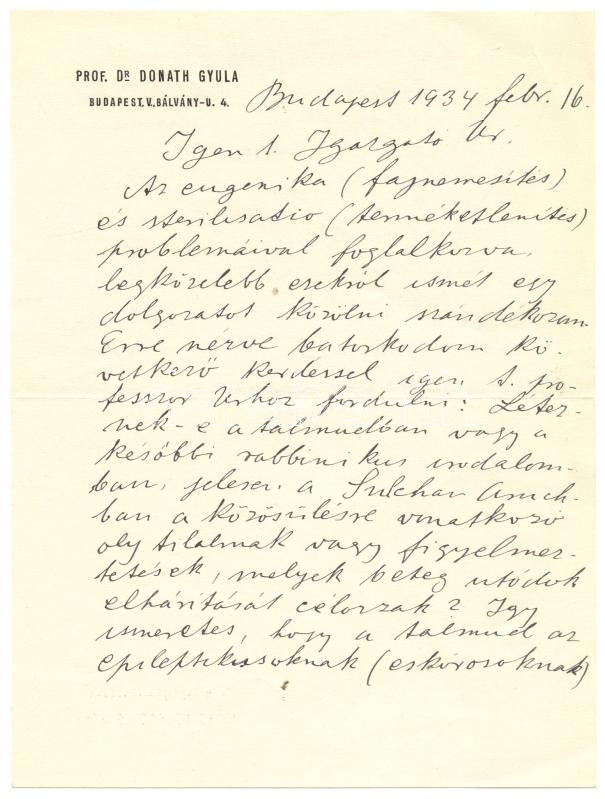 PROF. DR DONATH GYULA
BUDAPEST, V. BÁLVÁNY-U. 4.
Budapest 1934 febr. 16.
Igen t. Igazgató Úr.
Az eugenika (fajnemesítés)
és sterilisatio (terméketlenítés)
problemáival foglalkozva,
legközelebb ezekről ismét egy
dolgozatot közölni szándékozom.
Erre nézve bátorkodom kö-
vetkező kérdéssel igen t. pro-
fesszor Úrhoz fordulni: Létez-
nek-e a talmudban vagy a
későbbi rabbinikus irodalom-
ban, jelesen a Sulchan Aruch-
ban a közösülésre vonatkozó
oly tilalmak vagy figyelmez-
tetések, melyek beteg utódok
elhárítását célozzák? Így
ismeretes, hogy a talmud az
epileptikusoknak (eskórosoknak)